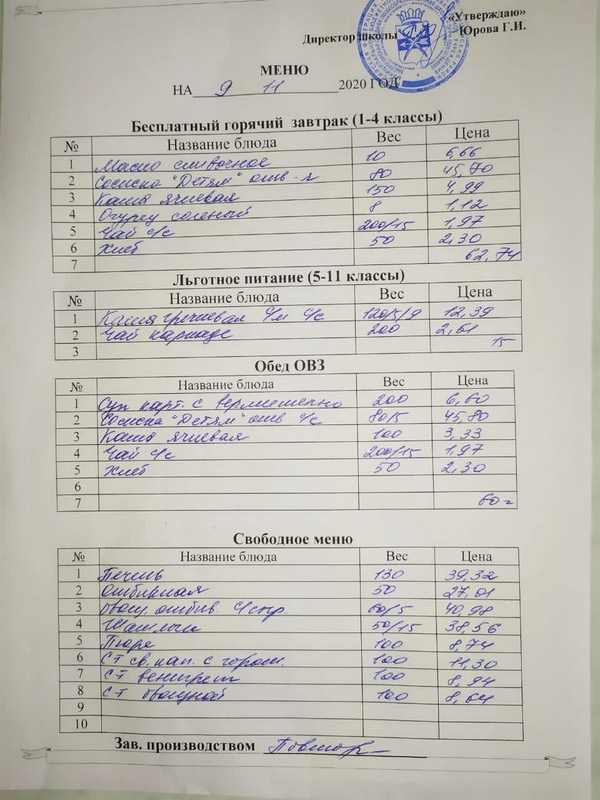 «Утверждаю»
Директор школы Юрова Г.И.
МЕНЮ
НА 9 11 2020 ГОД
Бесплатный горячий завтрак (1-4 классы)
№ Название блюда Вес Цена
1 Масло сливочное 10 6,66
2 Сосиска "Детям" отв 80 45,70
3 Каша ячневая 150 4,99
4 Огурец соленый 8 1,12
5 Чай с/с 200/15 1,97
6 Хлеб 50 2,30
7 62,74
Льготное питание (5-11 классы)
№ Название блюда Вес Цена
1 Каша гречневая с/м с/с 120/5/9 12,39
2 Чай каркаде 200 2,61
3 15
Обед ОВЗ
№ Название блюда Вес Цена
1 Суп карт. с вермишелью 200 6,60
2 Сосиска "Детям" отв с/с 80/5 45,80
3 Каша ячневая 100 3,33
4 Чай с/с 200/15 1,97
5 Хлеб 50 2,30
6
7 60
Свободное меню
№ Название блюда Вес Цена
1 Печень 130 39,32
2 Отбивная 50 27,01
3 отбив 60/5 40,98
4 Шашлык 50/15 38,56
5 Пюре 100 8,74
6 СТ св. кап. с горош. 100 11,30
7 СТ венигрет 100 8,94
8 СТ овощной 100 8,64
9
10
Зав. производством